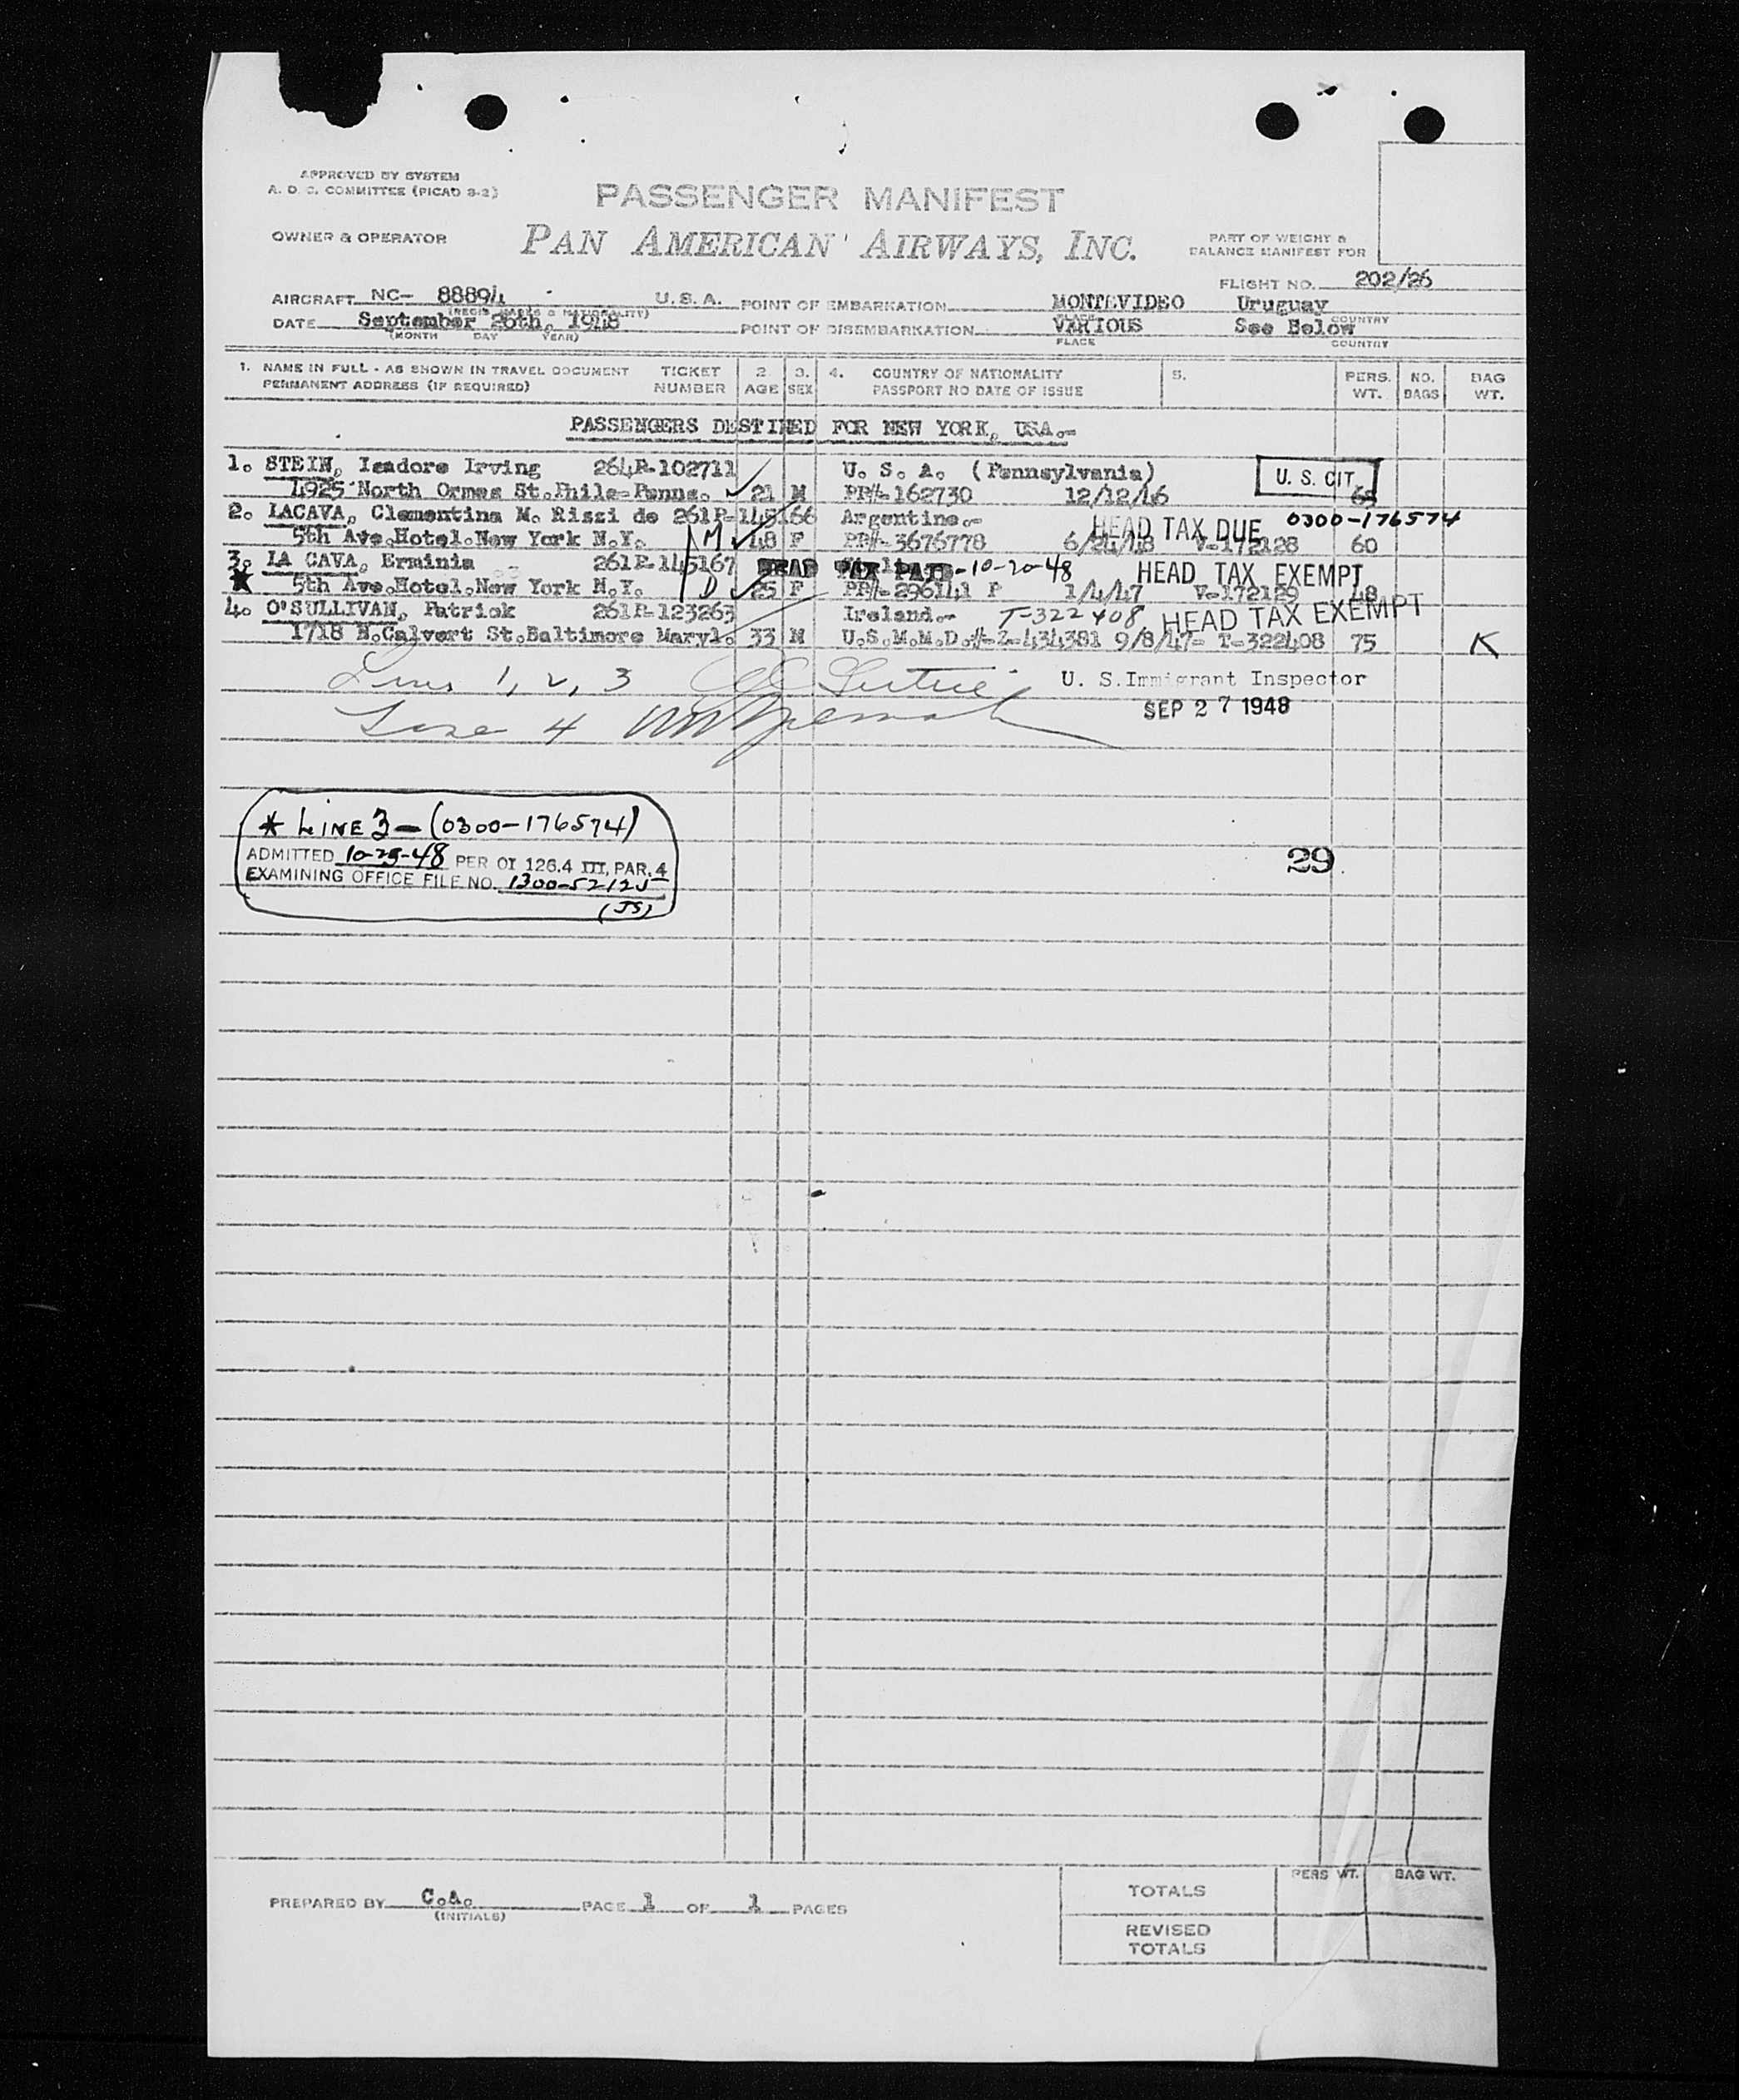 APPROVED BY SYSTEM
A. D. C. COMMITTEE (PICAO 3-2)
PASSENGER MANIFEST
OWNER & OPERATOR
PAN AMERICAN AIRWAYS, INC.
PART OF WEIGHT &
BALANCE MANIFEST FOR
FLIGHT NO. 202/26
AIRCRAFT NC- 88894 U.S.A. POINT OF EMBARKATION MONTEVIDEO Uruguay
(REGIS. MARKS & NATIONALITY) PLACE COUNTRY
DATE September 26th, 1948 POINT OF DISEMBARKATION VARIOUS See Below
(MONTH DAY YEAR) PLACE COUNTRY
1. NAME IN FULL - AS SHOWN IN TRAVEL DOCUMENT TICKET 2. 3. 4. COUNTRY OF NATIONALITY 5. PERS. NO. BAG
PERMANENT ADDRESS (IF REQUIRED) NUMBER AGE SEX PASSPORT NO DATE OF ISSUE WT. BAGS WT.
PASSENGERS DESTINED FOR NEW YORK, USA.-
1. STEIN, Isadore Irving 264R-102711 U. S. A. (Pennsylvania) U. S. CIT
4925 North Ormes St.Phila-Penna. 21 M PP#-162730 12/12/46
2. LACAVA, Clementina M. Rizzi de 261R-145166 Argentine.- HEAD TAX DUE 0300-176574
5th Ave.Hotel.New York N.Y. M 48 F PP#-3676778 6/24/48 V-172128 60
3. LA CAVA, Erminia 261R-145167 HEAD TAX PAID-10-20-48 HEAD TAX EXEMPT
* 5th Ave.Hotel.New York N.Y. D 25 F PP#-296141 P 1/4/47 V-172129 48
4. O'SULLIVAN, Patrick 261R-123263 Ireland.- T-322408 HEAD TAX EXEMPT
1718 N.Calvert St.Baltimore Maryl. 33 M U.S.M.M.D.#-Z-434381 9/8/47- T-322408 75 K
Lines 1, 2, 3 U. S. Immigrant Inspector
SEP 27 1948
Line 4
* LINE 3 - (0300-176574)
ADMITTED 10-25-48 PER OI 126.4 III, PAR. 4
EXAMINING OFFICE FILE NO.
(JS)
29
PERS WT. BAG WT.
TOTALS
PREPARED BY C.A. PAGE 1 OF 1 PAGES
(INITIALS)
REVISED
TOTALS